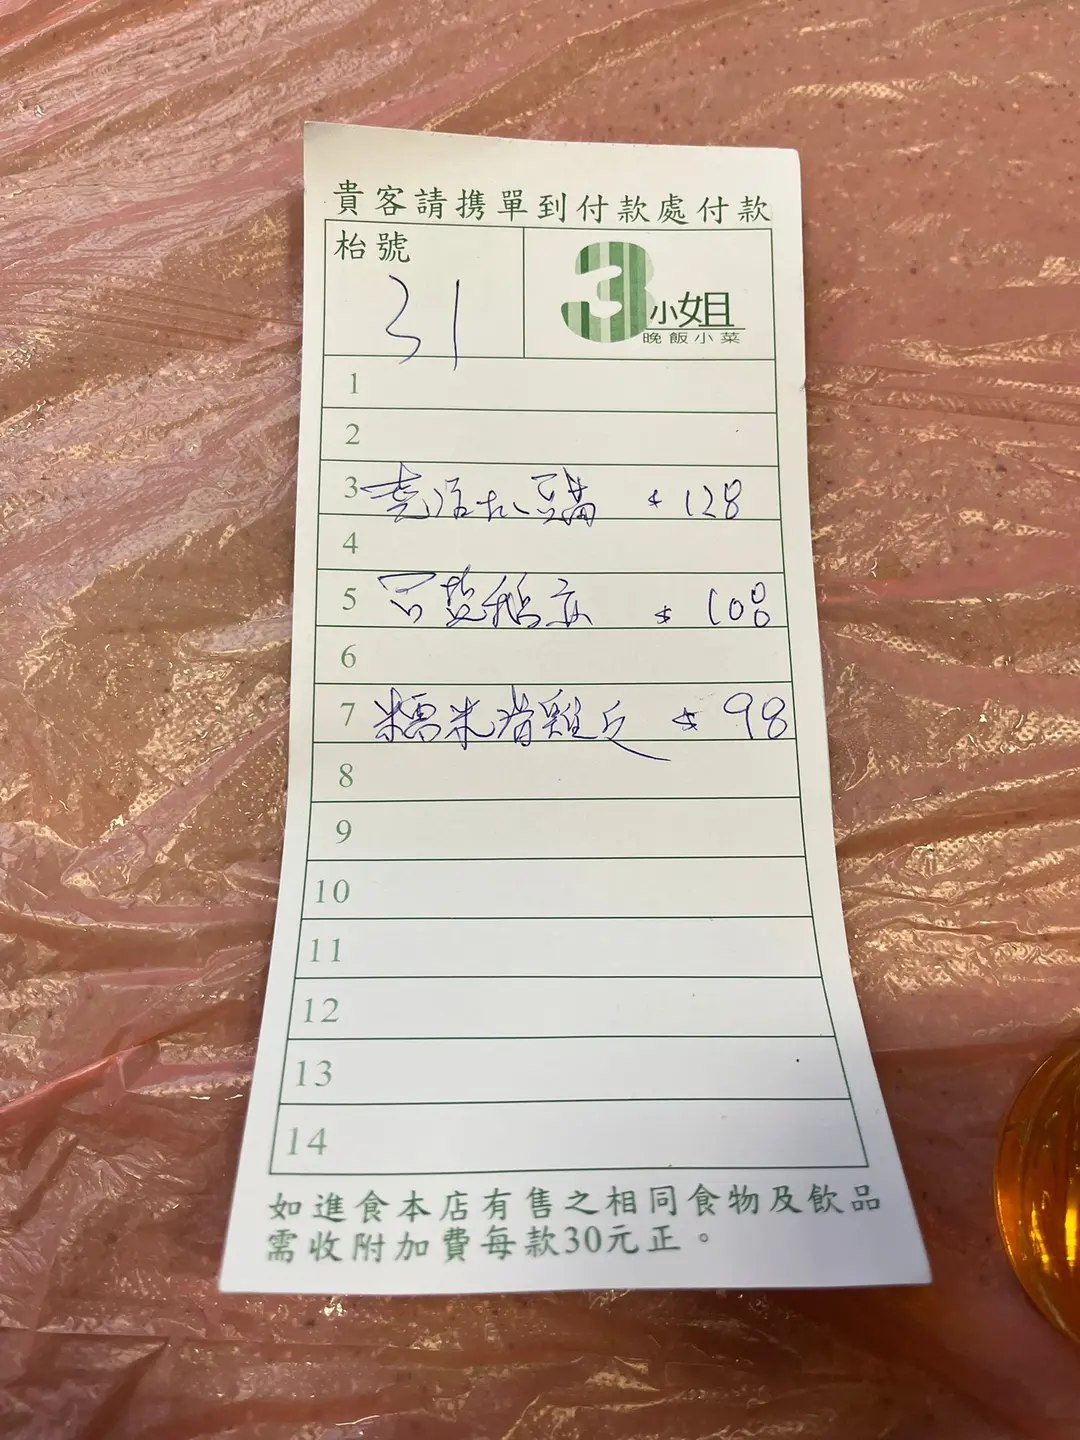 貴客請携單到付款處付款
枱號
31
3小姐
晚飯小菜
1
2
3 $128
4
5 $108
6
7 糯米 雞 $98
8
9
10
11
12
13
14
如進食本店有售之相同食物及飲品
需收附加費每款30元正。